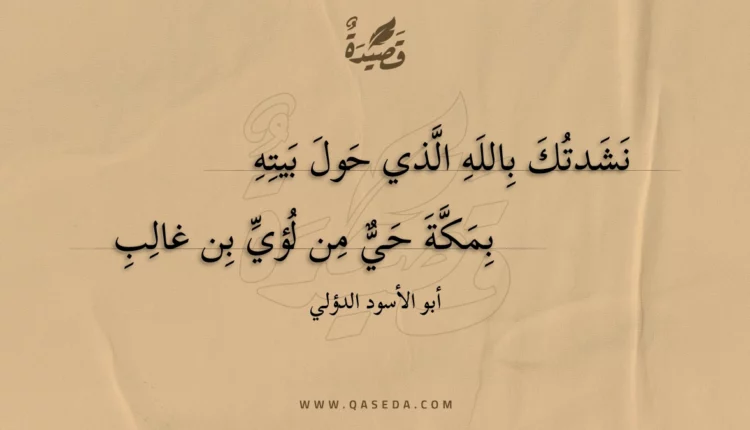 قَصِيْدَةٌ
نَشَدتُكَ بِاللَهِ الَّذي حَولَ بَيتِهِ
بِمَكَّةَ حَيٌّ مِن لُؤيِّ بِن غالِبِ
أبو الأسود الدؤلي
WWW.QASEDA.COM